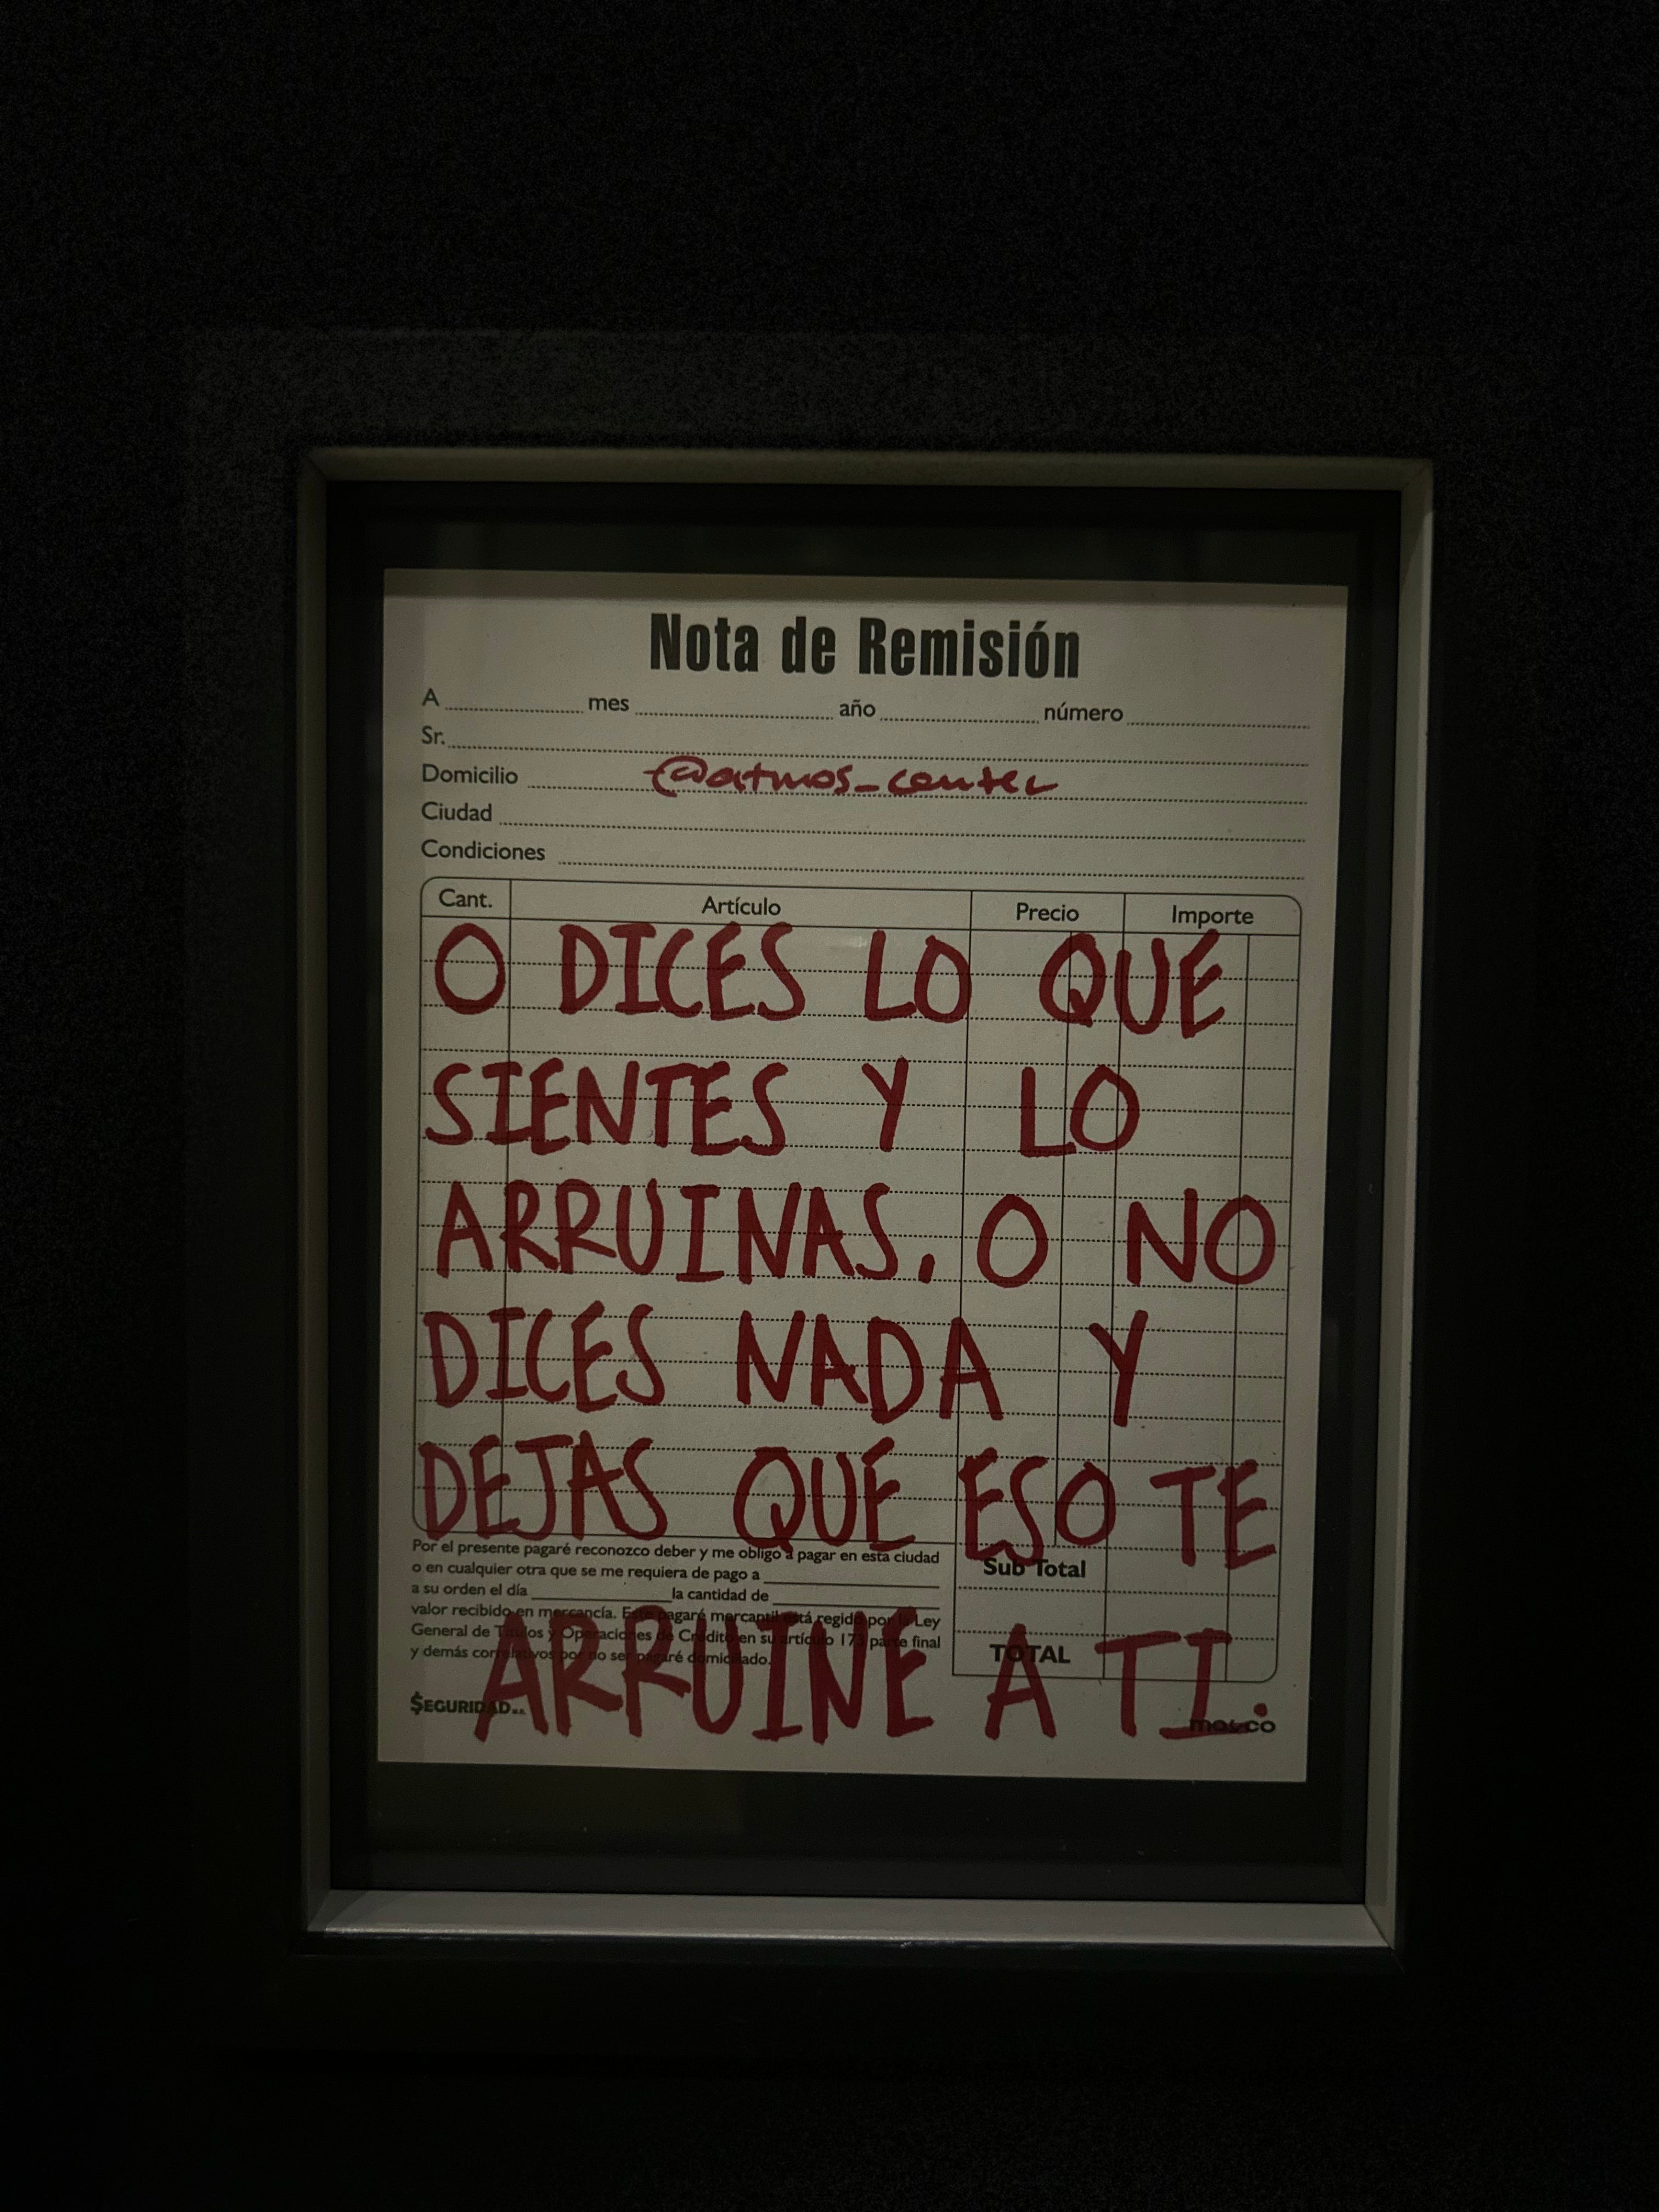 Nota de Remisión
A mes año número
Sr.
Domicilio @atmos_center
Ciudad
Condiciones
Cant. Artículo Precio Importe
O DICES LO QUE
SIENTES Y LO
ARRUINAS. O NO
DICES NADA Y
DEJAS QUE ESO TE
ARRUINE A TI.
Por el presente pagaré reconozco deber y me obligo a pagar en esta ciudad
o en cualquier otra que se me requiera de pago a
a su orden el día la cantidad de
valor recibido en mercancía. Este pagaré mercantil está regido por la Ley
General de Títulos y Operaciones de Crédito en su artículo 173 parte final
y demás correlativos por no ser pagaré domiciliado.
Sub Total
TOTAL
$EGURIDAD